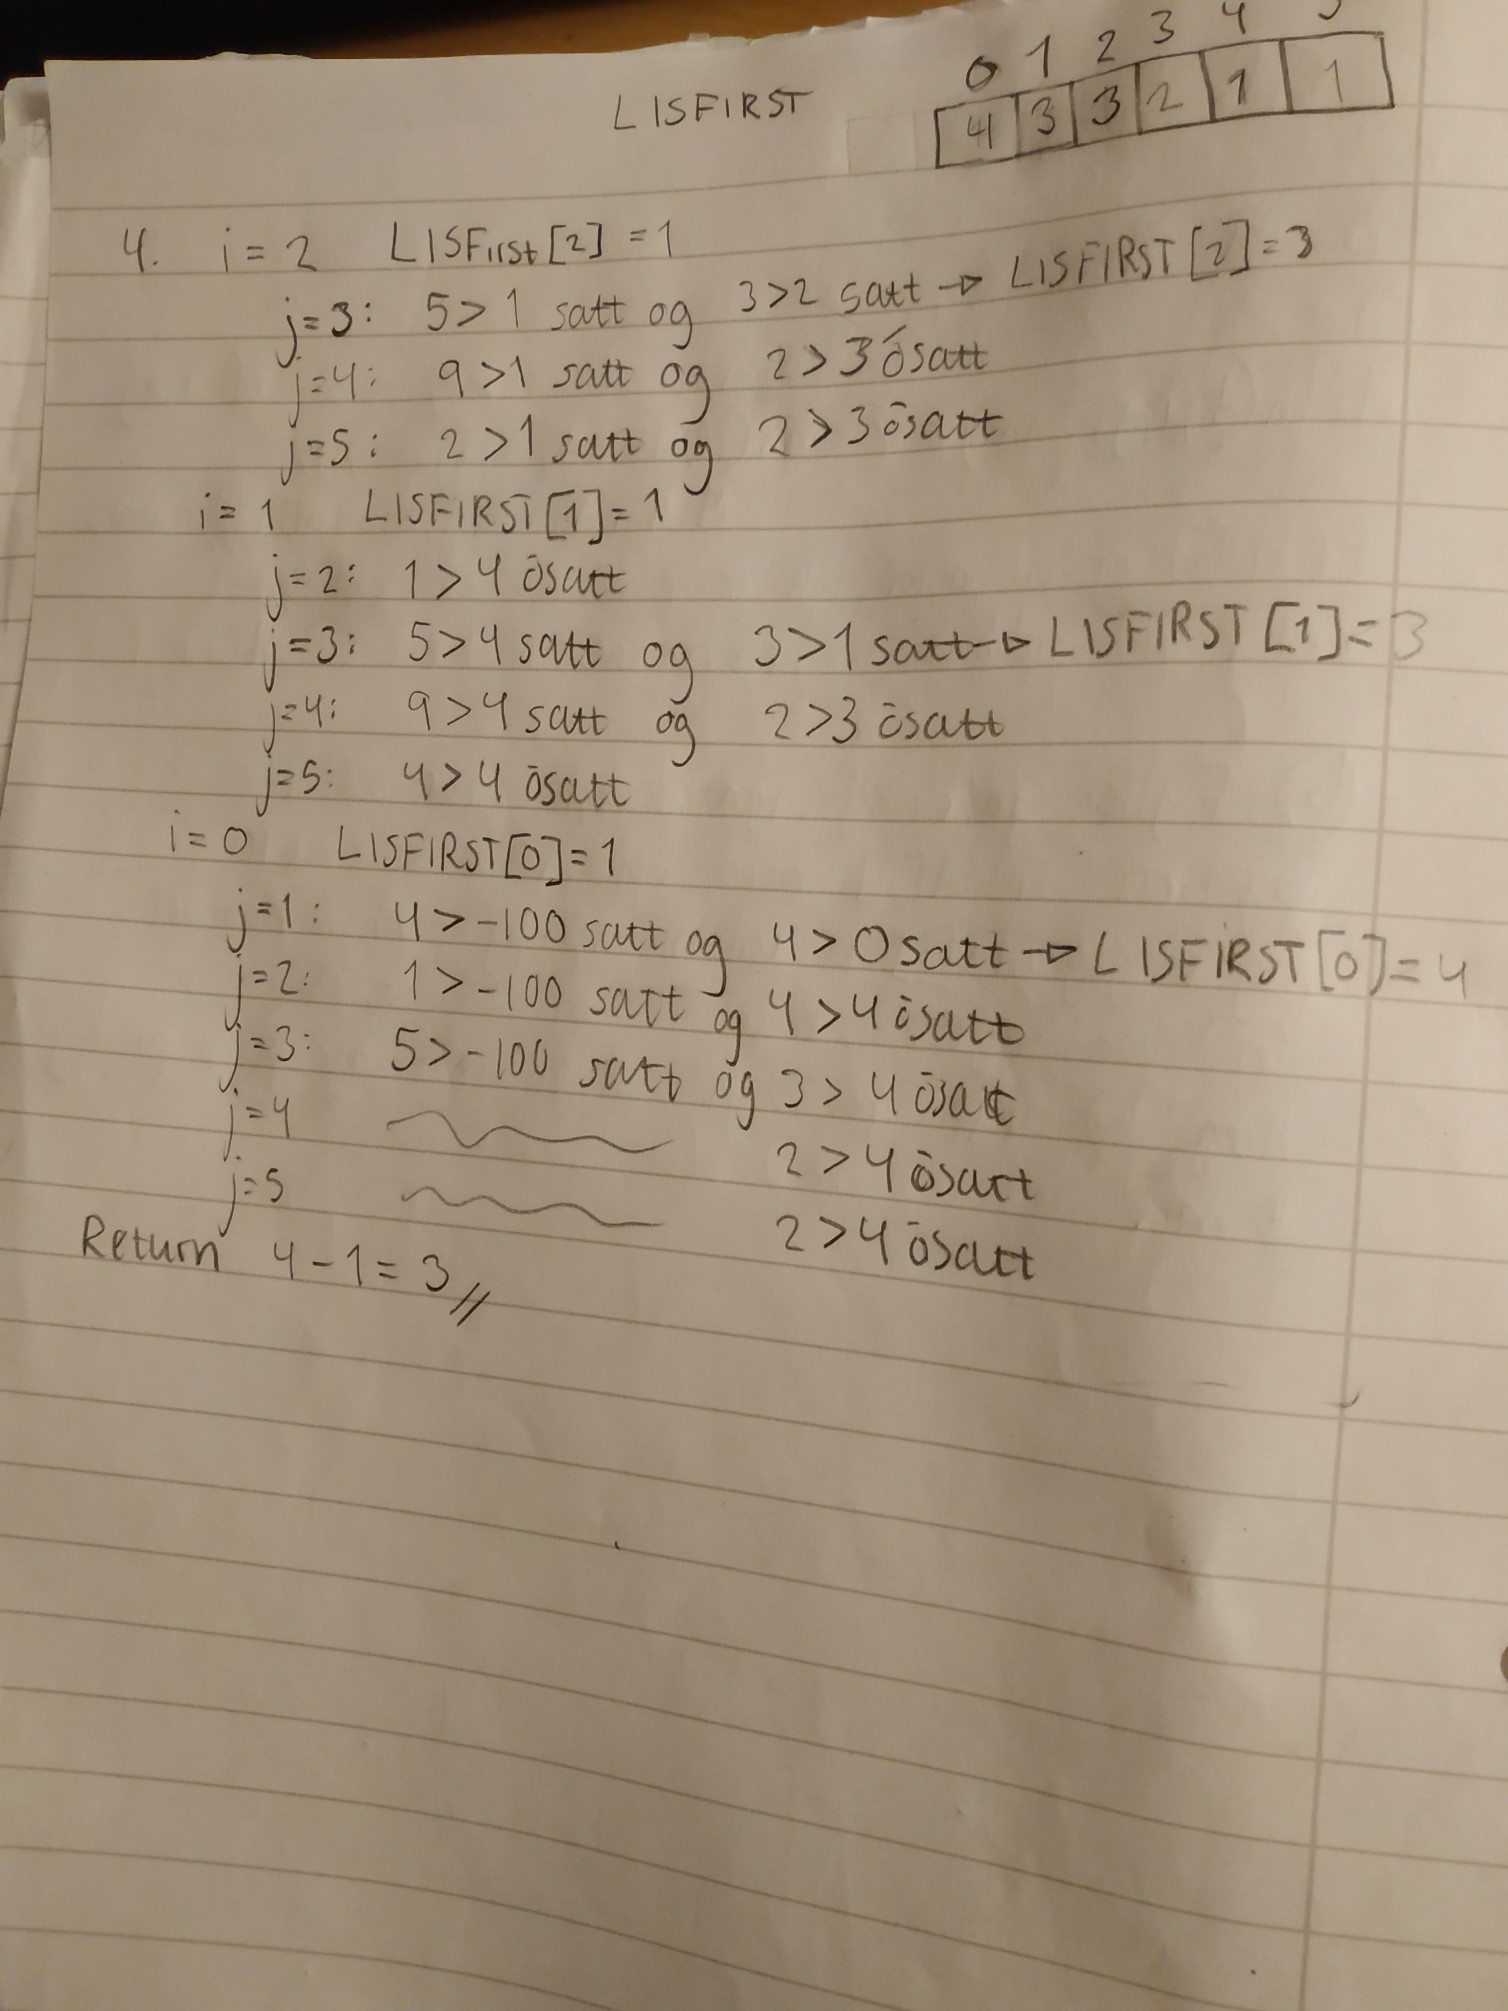 LISFIRST
0 1 2 3 4
4 3 3 2 1 1
4. i = 2 LISFirst[2] = 1
j=3: 5>1 satt og 3>2 satt → LISFIRST[2]=3
j=4: 9>1 satt og 2>3 ósatt
j=5: 2>1 satt og 2>3 ósatt
i = 1 LISFIRST[1]=1
j=2: 1>4 ósatt
j=3: 5>4 satt og 3>1 satt → LISFIRST[1]=3
j=4: 9>4 satt og 2>3 ósatt
j=5: 4>4 ósatt
i=0 LISFIRST[0]=1
j=1: 4>-100 satt og 4>0 satt → LISFIRST[0]=4
j=2: 1>-100 satt og 4>4 ósatt
j=3: 5>-100 satt og 3>4 ósatt
j=4 2>4 ósatt
j=5 2>4 ósatt
Return 4-1=3//